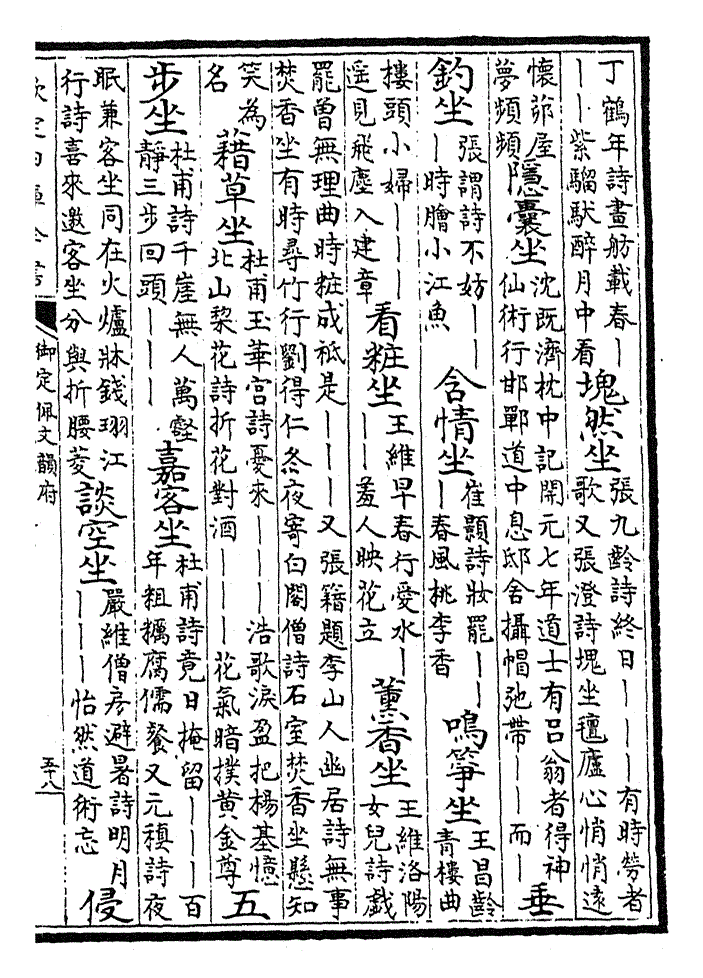 丁鶴年詩畫舫載春丨丨丨紫騮馱醉月中看 塊然坐 張九齡詩終日丨丨丨有時勞者歌又張澄詩塊坐氊廬心悄悄遠
懷茆屋夢頻頻 隱囊坐 沈既濟枕中記開元七年道士有呂翁者得神仙術行邯鄲道中息邸舍攝帽弛帶丨丨而丨 垂
釣坐 張謂詩不妨丨丨丨時膾小江魚 含情坐 崔顥詩妝罷丨丨丨春風桃李香 鳴箏坐 王昌齡青樓曲
樓頭小婦丨丨丨遥見飛塵入建章 看粧坐 王維早春行愛水丨丨丨羞人映花立 薰香坐 王維洛陽女兒詩戲
罷曾無理曲時粧成祗是丨丨丨又張籍題李山人幽居詩無事焚香坐有時尋竹行劉得仁冬夜寄白閣僧詩石室焚香坐懸知
笑為名 藉草坐 杜甫玉華宮詩憂來丨丨丨浩歌淚盈把楊基憶北山棃花詩折花對酒丨丨丨花氣暗撲黃金尊 五
步坐 杜甫詩千崖無人萬壑靜三步回頭丨丨丨 嘉客坐 杜甫詩竟日掩留丨丨丨百年粗糲腐儒餐又元稹詩夜
眠兼客坐同在火爐牀錢珝江行詩喜來邀客坐分與折腰菱 談空坐 嚴維僧房避暑詩明月丨丨丨怡然道術忘 侵
御定佩文韻府 五十八